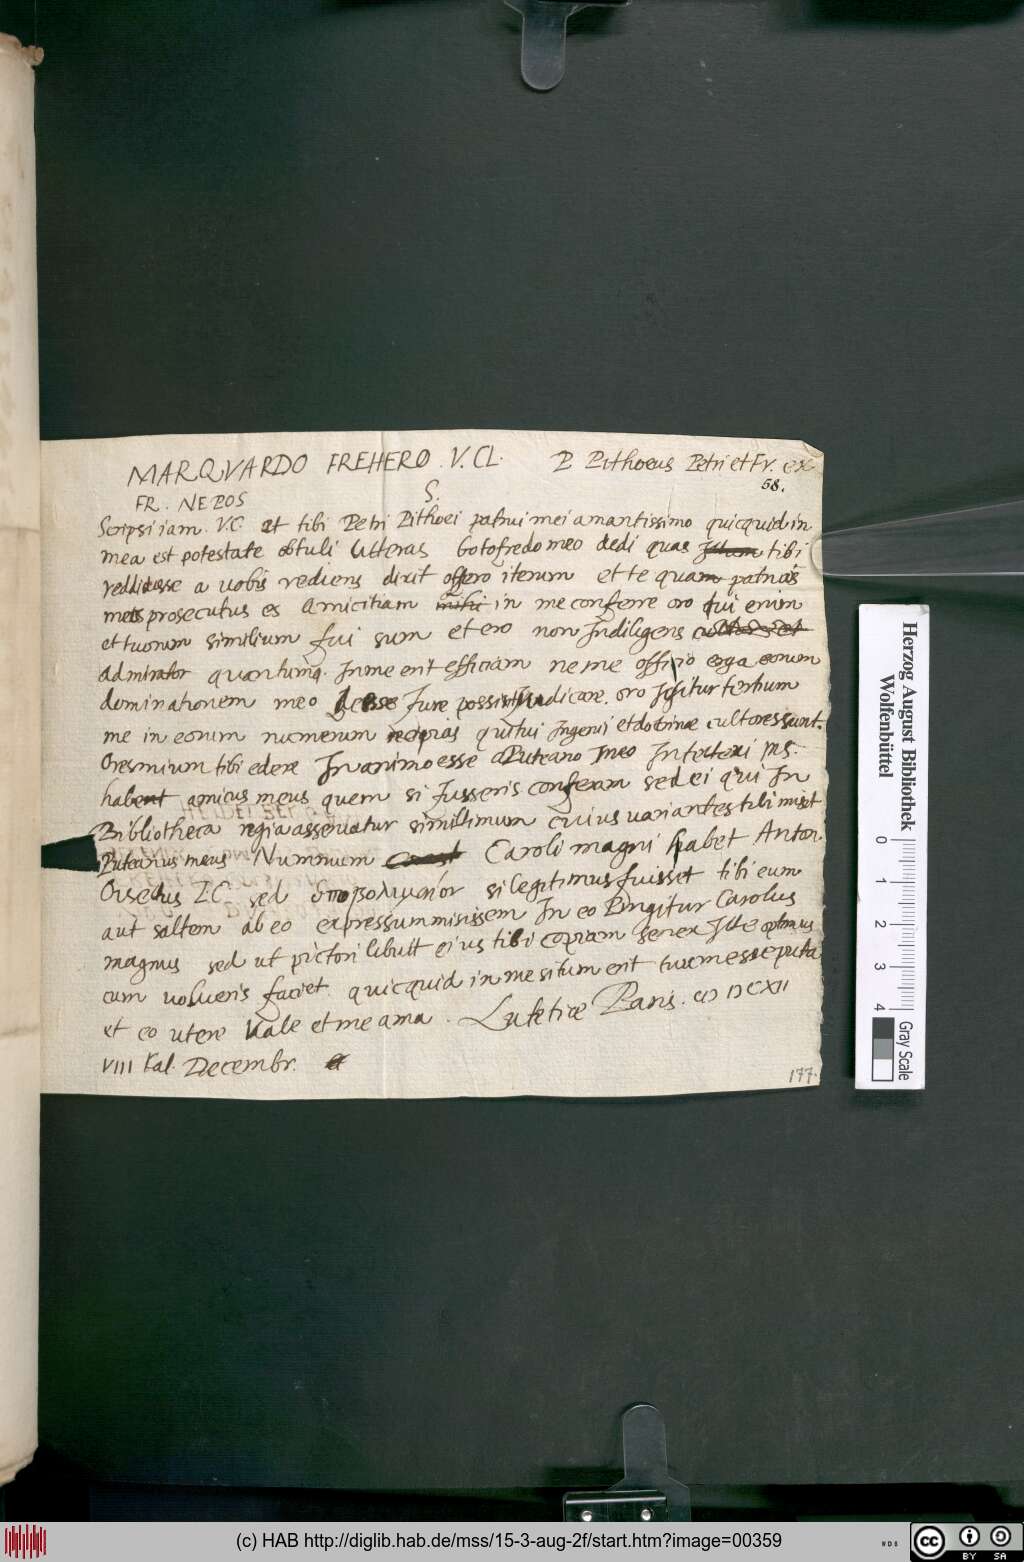 MARQVARDO FREHERO. V. CL. P. Pithoeus Petri et Fr. ex
58.
FR. NEPOS S.
Scripsi iam. V.C. et tibi Petri Pithoei patrui mei amantissimo quicquid in
mea est potestate obtuli litteras Gotofredo meo dedi quas tibi
reddidisse a vobis rediens dixit offero iterum et te quam patruus
meus prosecutus es amicitiam in me conferre oro qui enim
et tuorum similium fui sum et ero non Indiligens
admirator quantumq. In me erit efficiam ne me officio erga eorum
dominationem meo deesse Jure possis Judicare. oro Igitur tertium
me in eorum numerum recipias qui tui Ingenii et doctrinae cultores sunt.
Oresmium tibi edere In animo esse a Puteano meo Intellexi ms.
habent amicus meus quem si Jusseris conferam sed ei qui In
Bibliotheca regia asservatur simillimum cuius variantes tibi misit
Puteanus meus Nummum Caroli magni habet Anton.
Orsellus I.C. sed ὑποβολιμαῖον si legitimus fuisset tibi eum
aut saltem ab eo expressum misissem In eo Pingitur Carolus
magnus sed ut pictori libuit eius tibi copiam senex Ille optimus
cum volueris faciet. quicquid in me situm erit tuum esse puta
et eo utere Vale et me ama. Lutetiae Paris. cIɔ IɔCXII
VIII Kal. Decembr.
177.
Herzog August Bibliothek
Wolfenbüttel
0 1 2 3 4
Gray Scale
(c) HAB http://diglib.hab.de/mss/15-3-aug-2f/start.htm?image=00359
WDB
cc BY SA